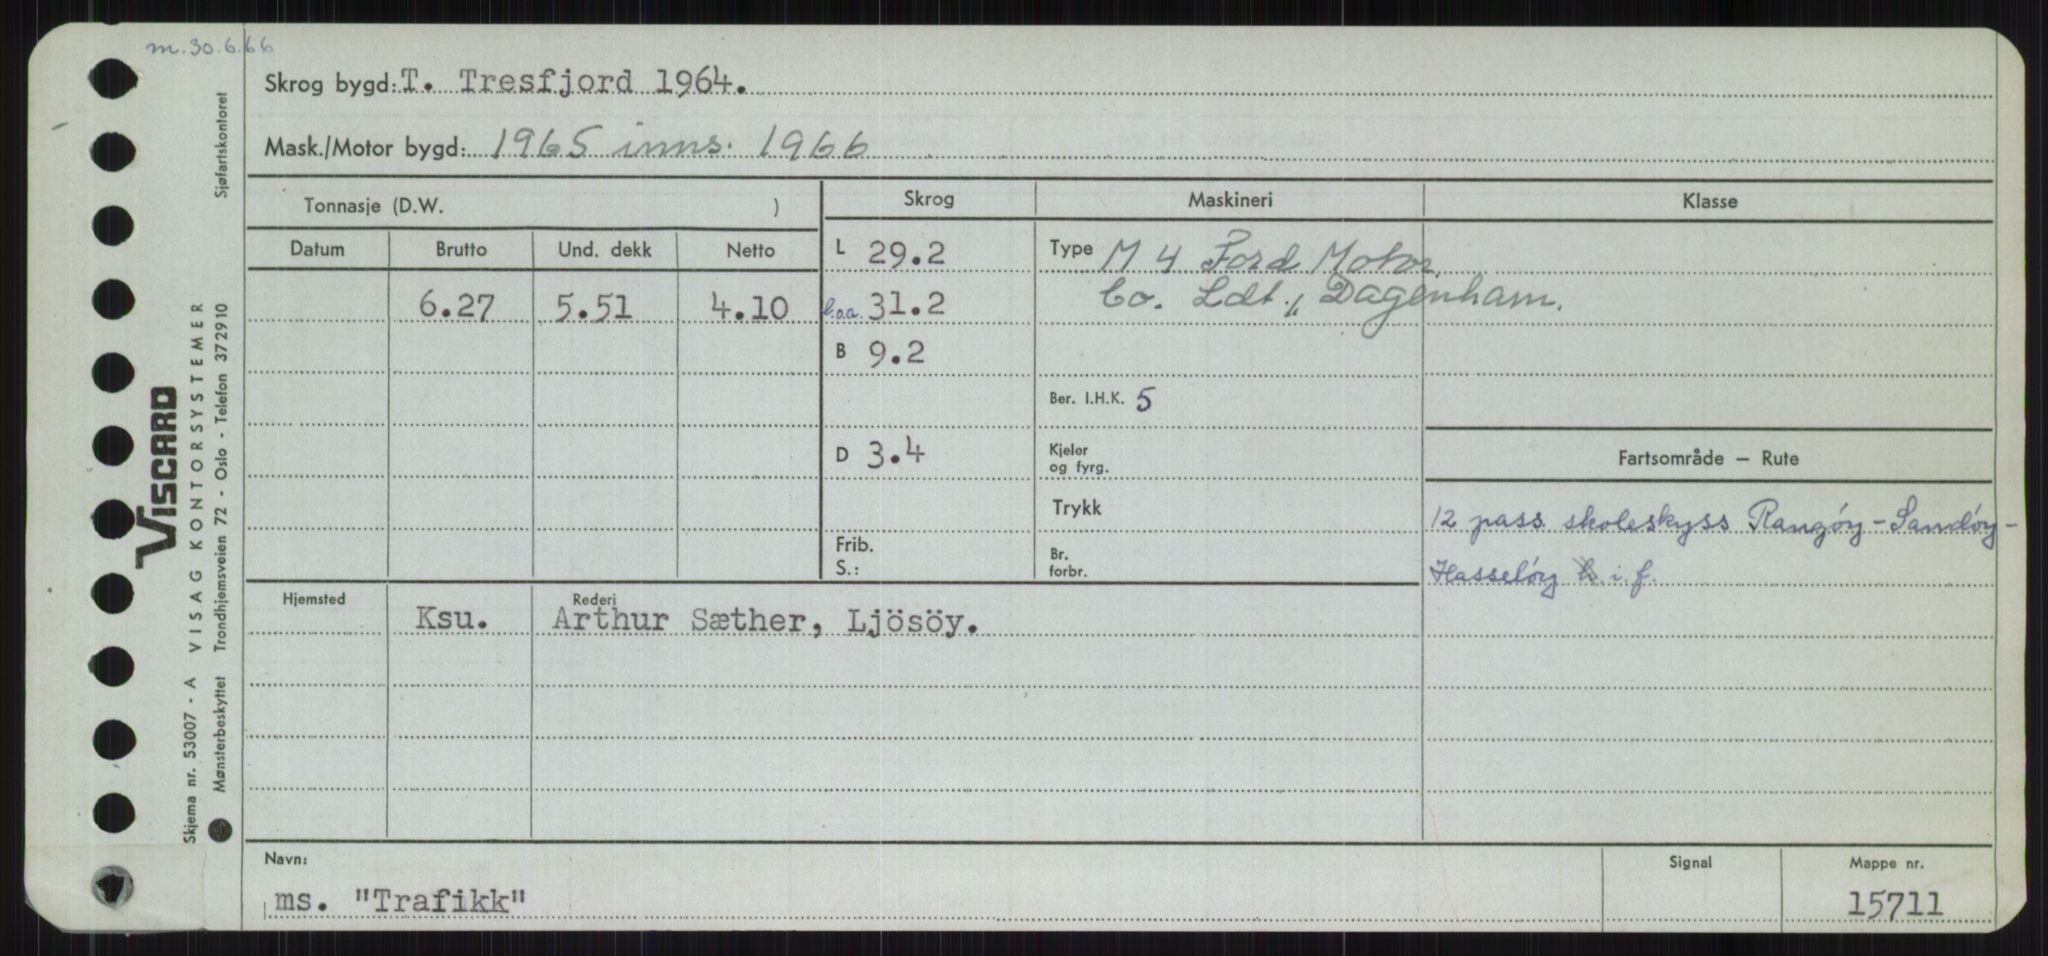 m. 30.6.66
Skrog bygd: T. Tresfjord 1964.
Mask./Motor bygd: 1965 inns. 1966
Tonnasje (D.W. )
Skrog
Maskineri
Klasse
Datum
Brutto
Und. dekk
Netto
L 29.2
Type M 4 Ford Motor
6.27 5.51 4.10
l.o.a. 31.2
Co. Ldt., Dagenham.
B 9.2
Ber. I.H.K. 5
D 3.4
Kjeler
og fyrg.
Fartsområde – Rute
Trykk
12 pass. skoleskyss Rangöy - Sandöy -
Frib.
S.:
Br.
forbr.
Hasselöy i. f.
Hjemsted
Ksu.
Rederi
Arthur Sæther, Ljösöy.
Navn:
ms. "Trafikk"
Signal
Mappe nr.
15711
VISCARD
Skjema nr. 53007 - A VISAG KONTORSYSTEMER
Mønsterbeskyttet Trondhjemsveien 72 - Oslo - Telefon 372910 Sjøfartskontoret